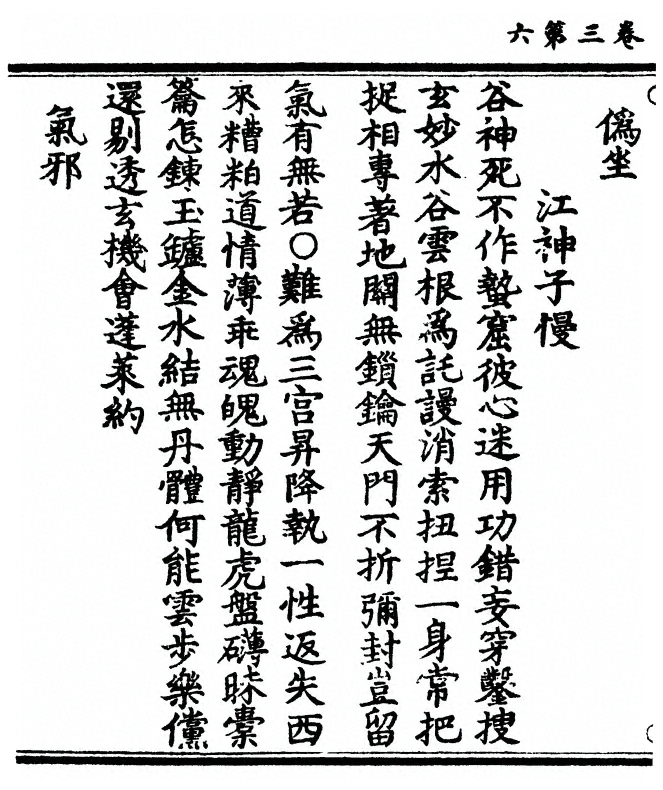 卷三第六
僞坐
江神子慢
谷神死不作蟄窟彼心迷用功錯妄穿鑿搜
玄妙水谷雲根爲託謾消索扭揑一身常把
捉相專著地關無鎖鑰天門不折彌封豈留
氣有無若○難爲三宫昇降執一性返失西
來糟粕道情薄乖魂魄動靜龍虎盤礴昧橐
籥怎鍊玉鑪金水結無丹體何能雲步樂儻
還剔透玄機會蓬萊約
氣邪